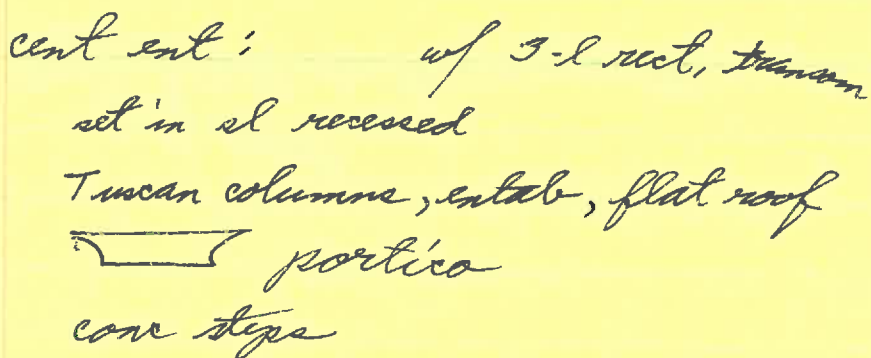 cent ent: w/ 3-l rect, transom
set in sl recessed
Tuscan columns, entab, flat roof
portico
conc steps